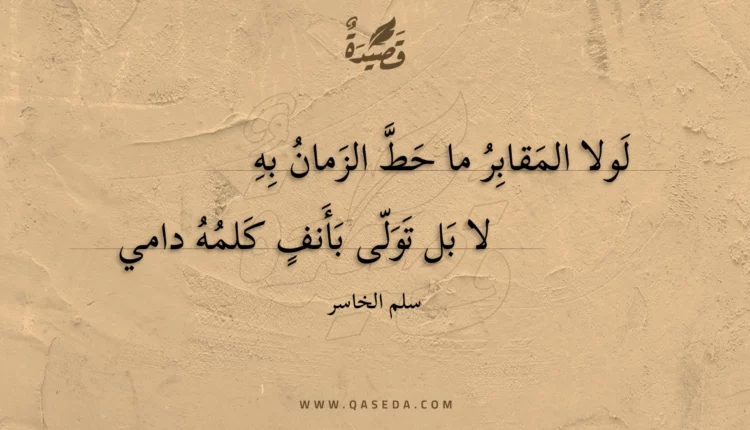 قَصِيدَةٌ
لَولا المَقابِرُ ما حَطَّ الزَمانُ بِهِ
لا بَل تَوَلّى بَأَنفٍ كَلمُهُ دامي
سلم الخاسر
WWW.QASEDA.COM